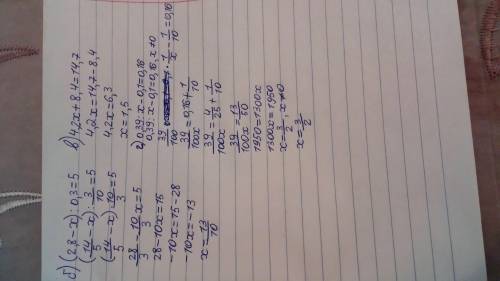 б) (2,8-x):0,3=5
(14/5-x):3/10=5
(14/5-x)·10/3=5
28/3-10/3x=5
28-10x=15
-10x=15-28
-10x=-13
x=13/10
в) 4,2x+8,4=14,7
4,2x=14,7-8,4
4,2x=6,3
x=1,5
г) 0,39:x-0,1=0,16
0,39:x-0,1=0,16, x≠0
39/100 · 1/x - 1/10=0,16
39/100x=0,16+1/10
39/100x=4/25+1/10
39/100x=13/50
1950=1300x
1300x=1950
x=3/2, x≠0
x=3/2